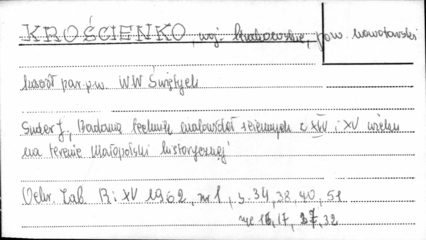 KROŚCIENKO, woj. krakowskie, pow. nowotarski
kośc. par. p.w. WW Świętych
Suder J., Badania techniki malowideł ściennych z XIV i XV wieku
na terenie Małopolski historycznej
Ochr. Zab. R: XV 1962, nr 1, s. 34, 38, 40, 51
17, 32